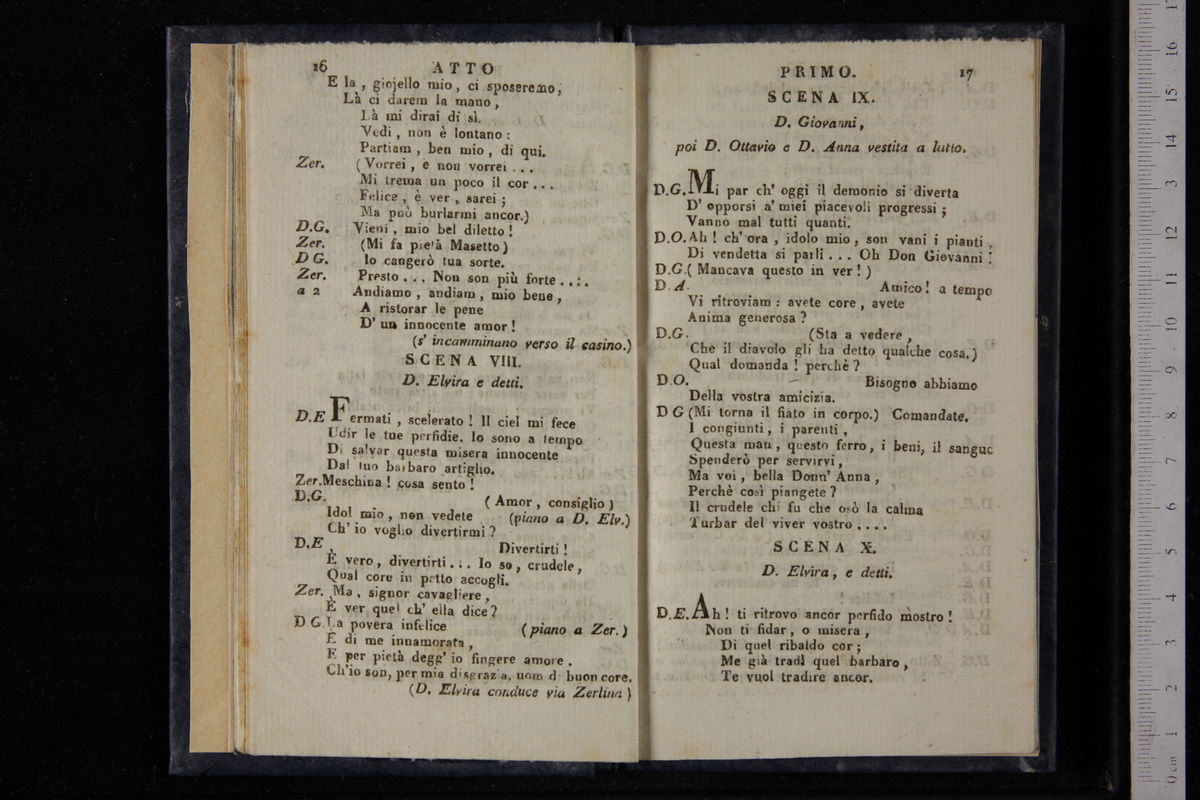 16 ATTO
E la, giojello mio, ci sposeremo;
Là ci darem la mano,
Là mi dirai di sì.
Vedi, non è lontano:
Partiam, ben mio, di qui.
Zer. (Vorrei, e non vorrei...
Mi trema un poco il cor...
Felice, è ver, sarei;
Ma può burlarmi ancor.)
D.G. Vieni, mio bel diletto!
Zer. (Mi fa pietà Masetto)
D G. Io cangerò tua sorte.
Zer. Presto... Non son più forte...
a 2 Andiamo, andiam, mio bene,
A ristorar le pene
D' un innocente amor!
(s' incamminano verso il casino.)
SCENA VIII.
D. Elvira e detti.
D.E Fermati, scelerato! Il ciel mi fece
Udir le tue perfidie. Io sono a tempo
Di salvar questa misera innocente
Dal tuo barbaro artiglio.
Zer. Meschina! cosa sento!
D.G. (Amor, consiglio)
Idol mio, non vedete (piano a D. Elv.)
Ch' io voglio divertirmi?
D.E. Divertirti!
È vero, divertirti... Io so, crudele,
Qual core in petto accogli.
Zer. Ma, signor cavagliere,
È ver quel ch' ella dice?
D G La povera infelice (piano a Zer.)
È di me innamorata,
E per pietà degg' io fingere amore,
Ch'io son, per mia disgrazia, uom di buon core.
(D. Elvira conduce via Zerlina)
PRIMO. 17
SCENA IX.
D. Giovanni,
poi D. Ottavio e D. Anna vestita a lutto.
D.G. Mi par ch' oggi il demonio si diverta
D' opporsi a' miei piacevoli progressi;
Vanno mal tutti quanti.
D.O. Ah! ch' ora, idolo mio, son vani i pianti.
Di vendetta si parli... Oh Don Giovanni!
D.G. (Mancava questo in ver!)
D.A. Amico! a tempo
Vi ritroviam: avete core, avete
Anima generosa?
D.G. (Sta a vedere,
Che il diavolo gli ha detto qualche cosa.)
Qual domanda! perchè?
D O. Bisogno abbiamo
Della vostra amicizia.
D G (Mi torna il fiato in corpo.) Comandate.
I congiunti, i parenti,
Questa man, questo ferro, i beni, il sangue
Spenderò per servirvi,
Ma voi, bella Donn' Anna,
Perchè così piangete?
Il crudele chi fu che osò la calma
Turbar del viver vostro....
SCENA X.
D. Elvira, e detti.
D.E. Ah! ti ritrovo ancor perfido mostro!
Non ti fidar, o misera,
Di quel ribaldo cor;
Me già tradì quel barbaro,
Te vuol tradire ancor.
0 cm 1 2 3 4 5 6 7 8 9 10 11 12 13 14 15 16 17